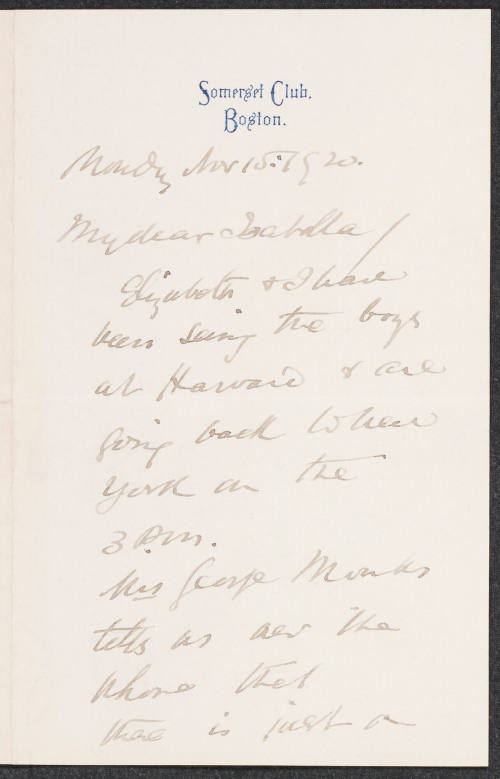 Somerset Club,
Boston.
Monday Nov 15: 1920.
My dear Isabella /
Elizabeth & I have
been seeing the boys
at Harvard & are
going back to New
York on the
3 P.m.
Mrs George Monks
tells us over the
phone that
there is just a